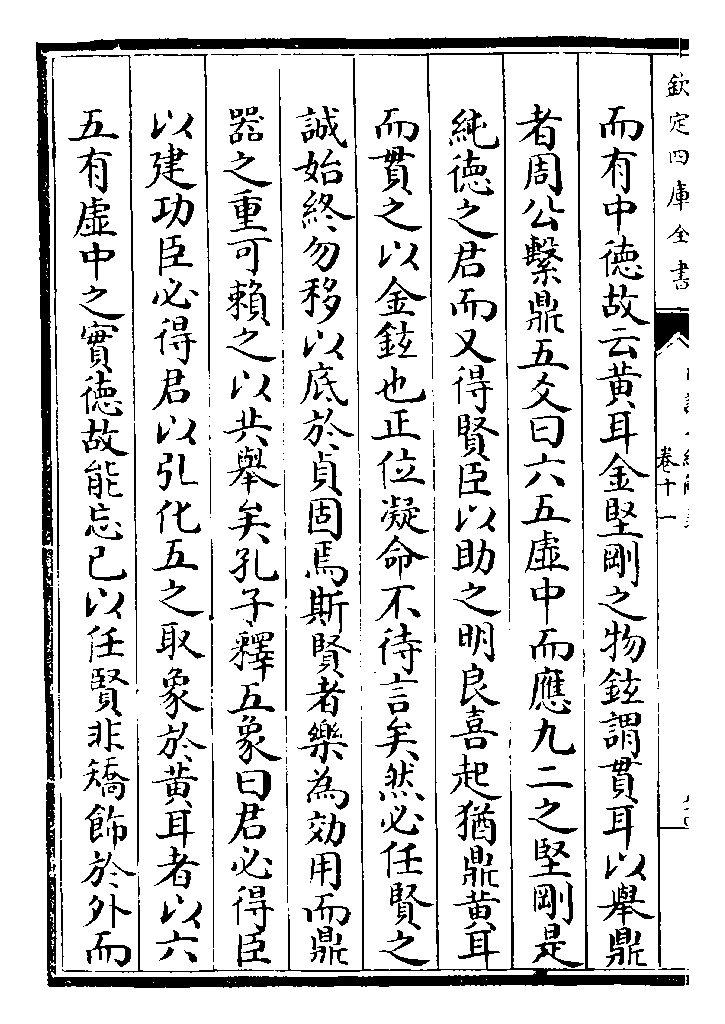 欽定四庫全書
卷十一
而有中德故云黄耳金堅剛之物鉉謂貫耳以舉鼎
者周公繫鼎五爻曰六五虛中而應九二之堅剛是
純德之君而又得賢臣以助之明良喜起猶鼎黄耳
而貫之以金鉉也正位凝命不待言矣然必任賢之
誠始終勿移以底於貞固焉斯賢者樂為効用而鼎
器之重可賴之以共舉矣孔子釋五象曰君必得臣
以建功臣必得君以弘化五之取象於黄耳者以六
五有虛中之實德故能忘已以任賢非矯飾於外而